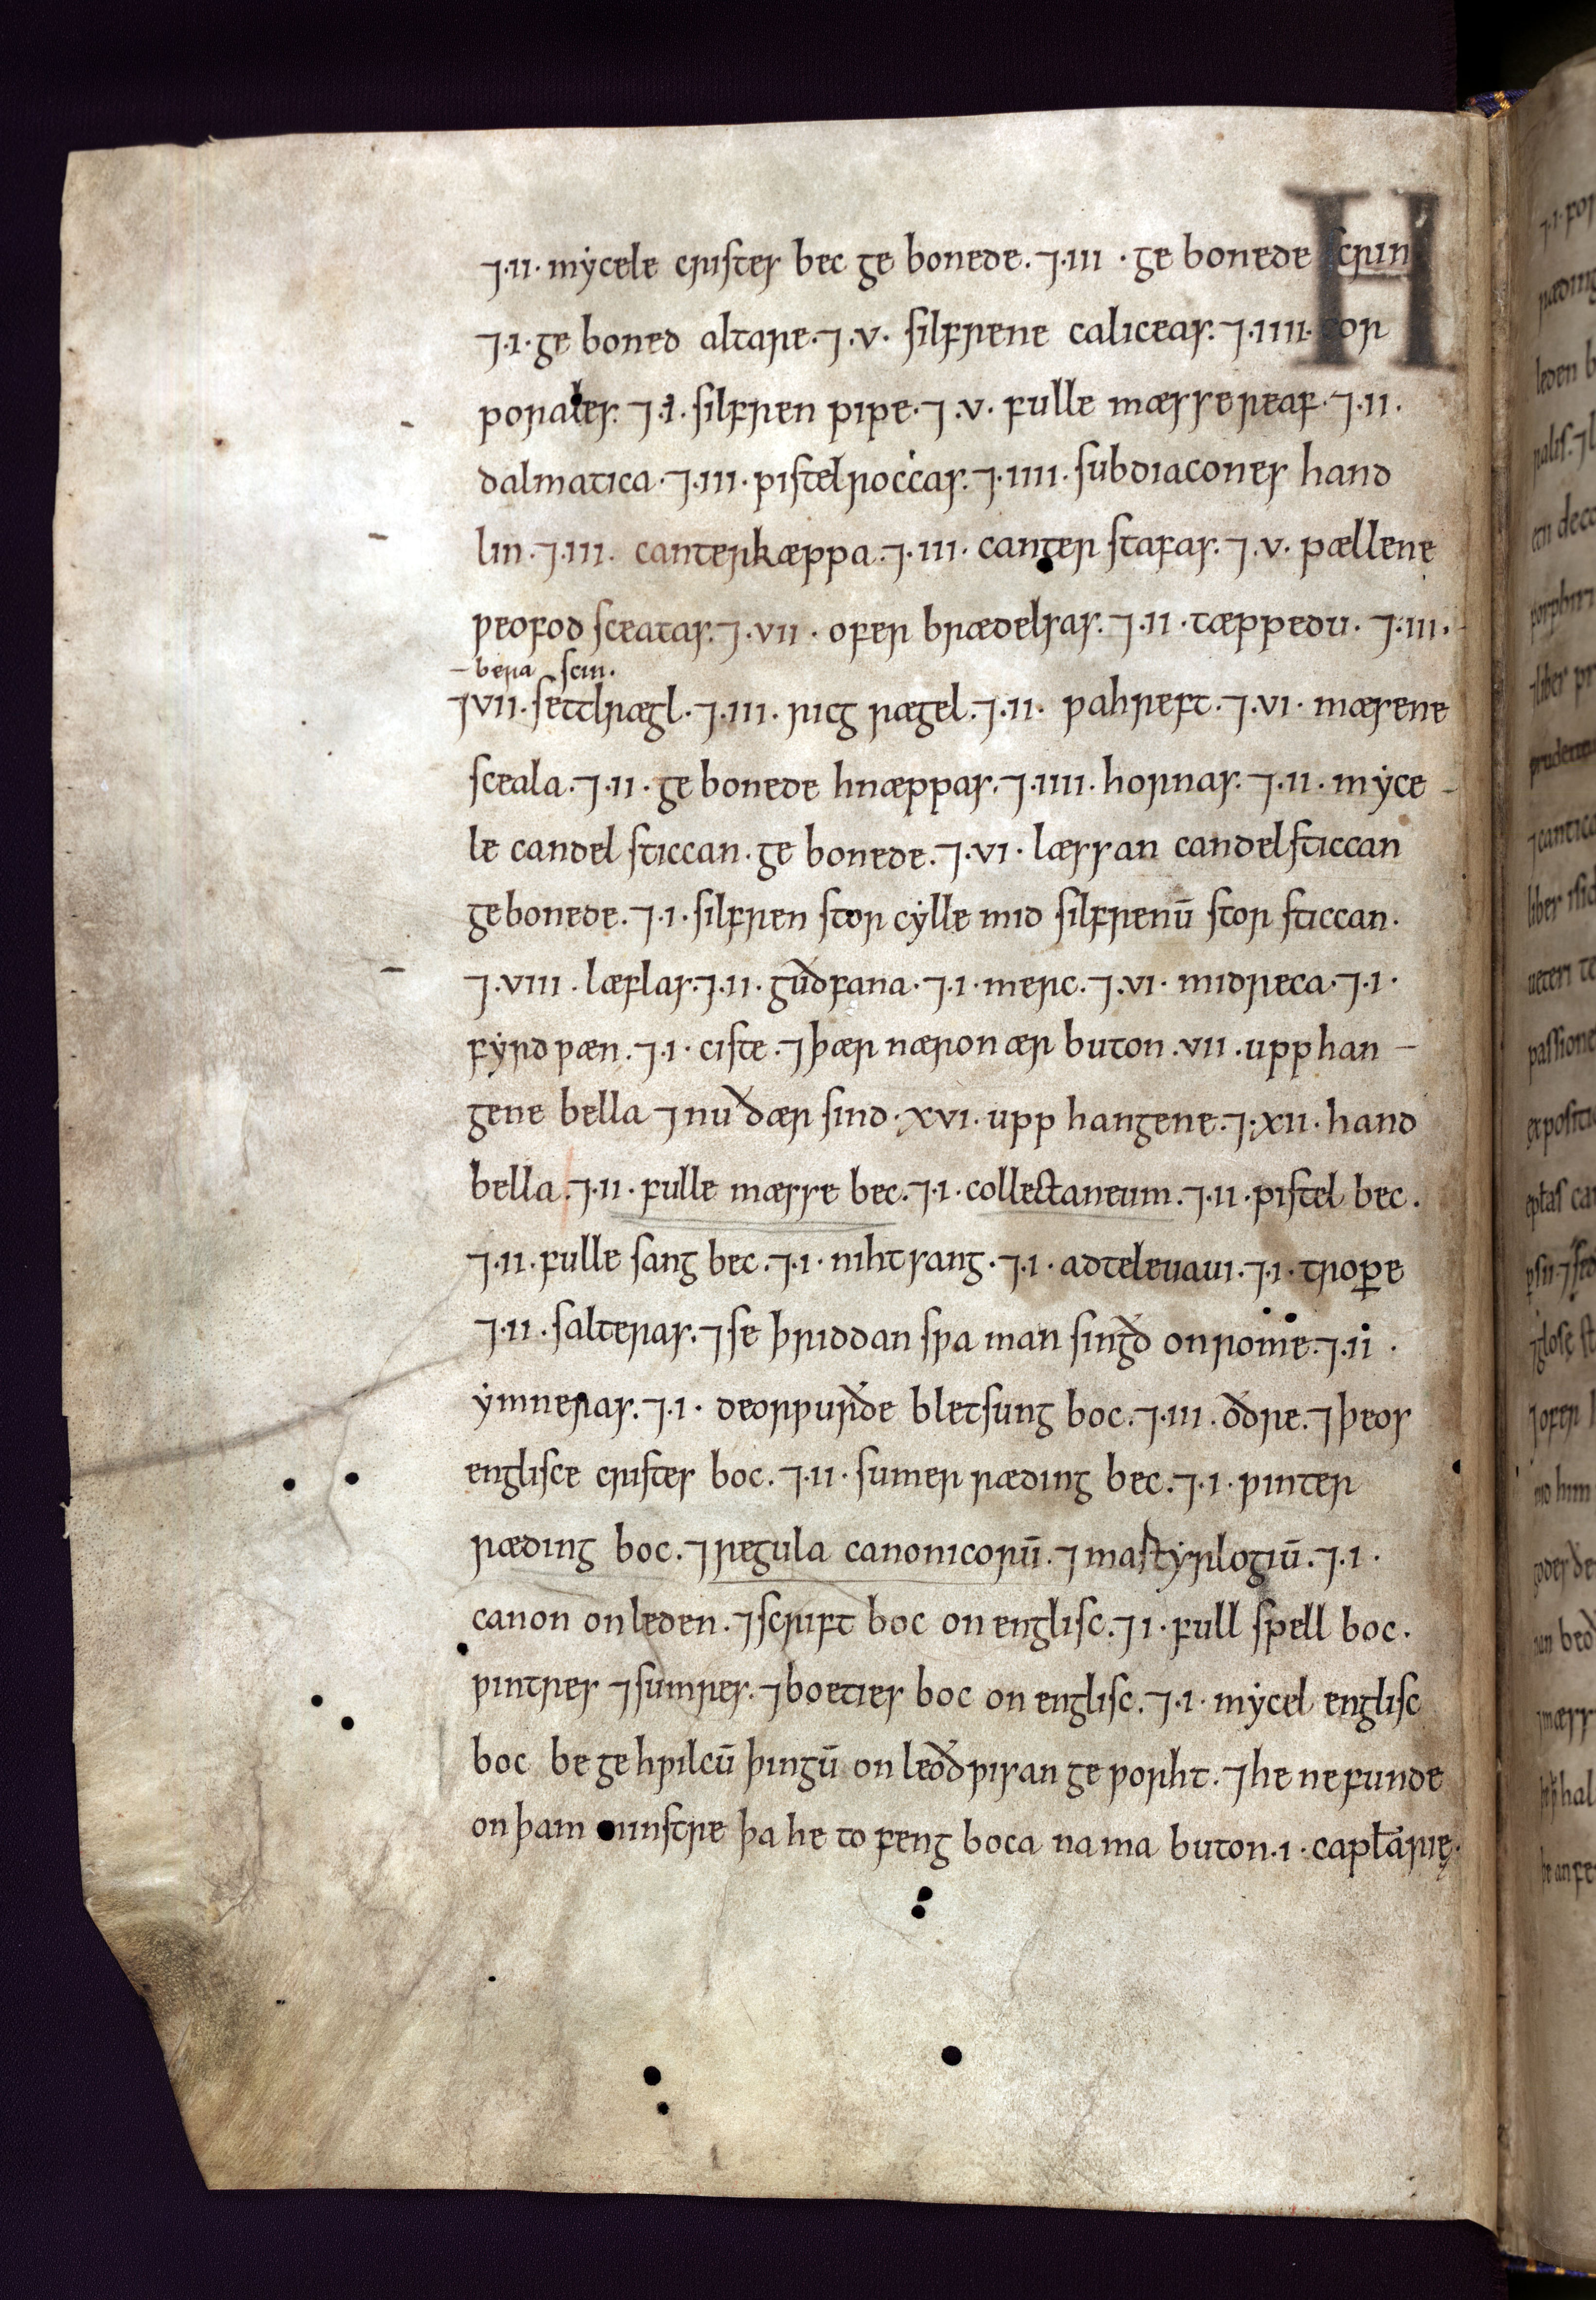 ⁊·ii· mẏcele cristes bec ge bonede.⁊·iii· ge bonede scrin
⁊·i· ge boned altare.⁊·v· silfrene caliceas.⁊·iiii· cor
porales.⁊·i· silfren pipe.⁊·v· fulle mæssereaf.⁊·ii·
dalmatica.⁊·iii· pistelroccas.⁊·iiii· subdiacones hand
lin.⁊·iii· canterkæppa.⁊·iii· canter stafas.⁊·v· pællene
ƿeofod sceatas.⁊·vii· ofer brædelsas.⁊·ii· tæppedu.⁊·iii·
bera scin.
⁊vii· setthrægl.⁊·iii· ricg rægel.⁊·ii· ƿahreft.⁊·vi· mæsene
sceala.⁊·ii· ge bonede hnæppas.⁊·iiii· hornas.⁊·ii· mẏce
le candel sticcan. ge bonede.⁊·vi· læssan candelsticcan
gebonede.⁊·i· silfren stor cẏlle mid silfrenū stor sticcan.
⁊·viii· læflas.⁊·ii· guðfana.⁊·i· merc.⁊·vi· midreca.⁊·i·
fẏrdƿæn.⁊·i· ciste.⁊ þær næron ær buton ·vii· upphan
gene bella ⁊ nu ðær sind ·xvi· upp hangene.⁊·xii· hand
bella.⁊·ii· fulle mæsse bec.⁊·i· collectaneum.⁊·ii· pistel bec.
⁊·ii· fulle sang bec.⁊·i· niht sang.⁊·i· adteleuaui.⁊·i· troꝑe
⁊·ii· salteras.⁊ se þriddan sƿa man singð on rome.⁊·ii·
ẏmneras.⁊·i· deorƿurðe bletsung boc.⁊·iii· oðre.⁊ þeos
englisce cristes boc.⁊·ii· sumer ræding bec.⁊·i· ƿinter
ræding boc.⁊ regula canonicorū.⁊ martẏrlogiū.⁊·i·
canon on leden.⁊ scrift boc on englisc.⁊ i· full spell boc.
ƿintres ⁊ sumres.⁊ boeties boc on englisc.⁊·i· mẏcel englisc
boc be ge hƿilcū þingū on leoðƿisan ge ƿorht.⁊ he ne funde
on þam munstre þa he to feng boca na ma buton ·i· capłarię.